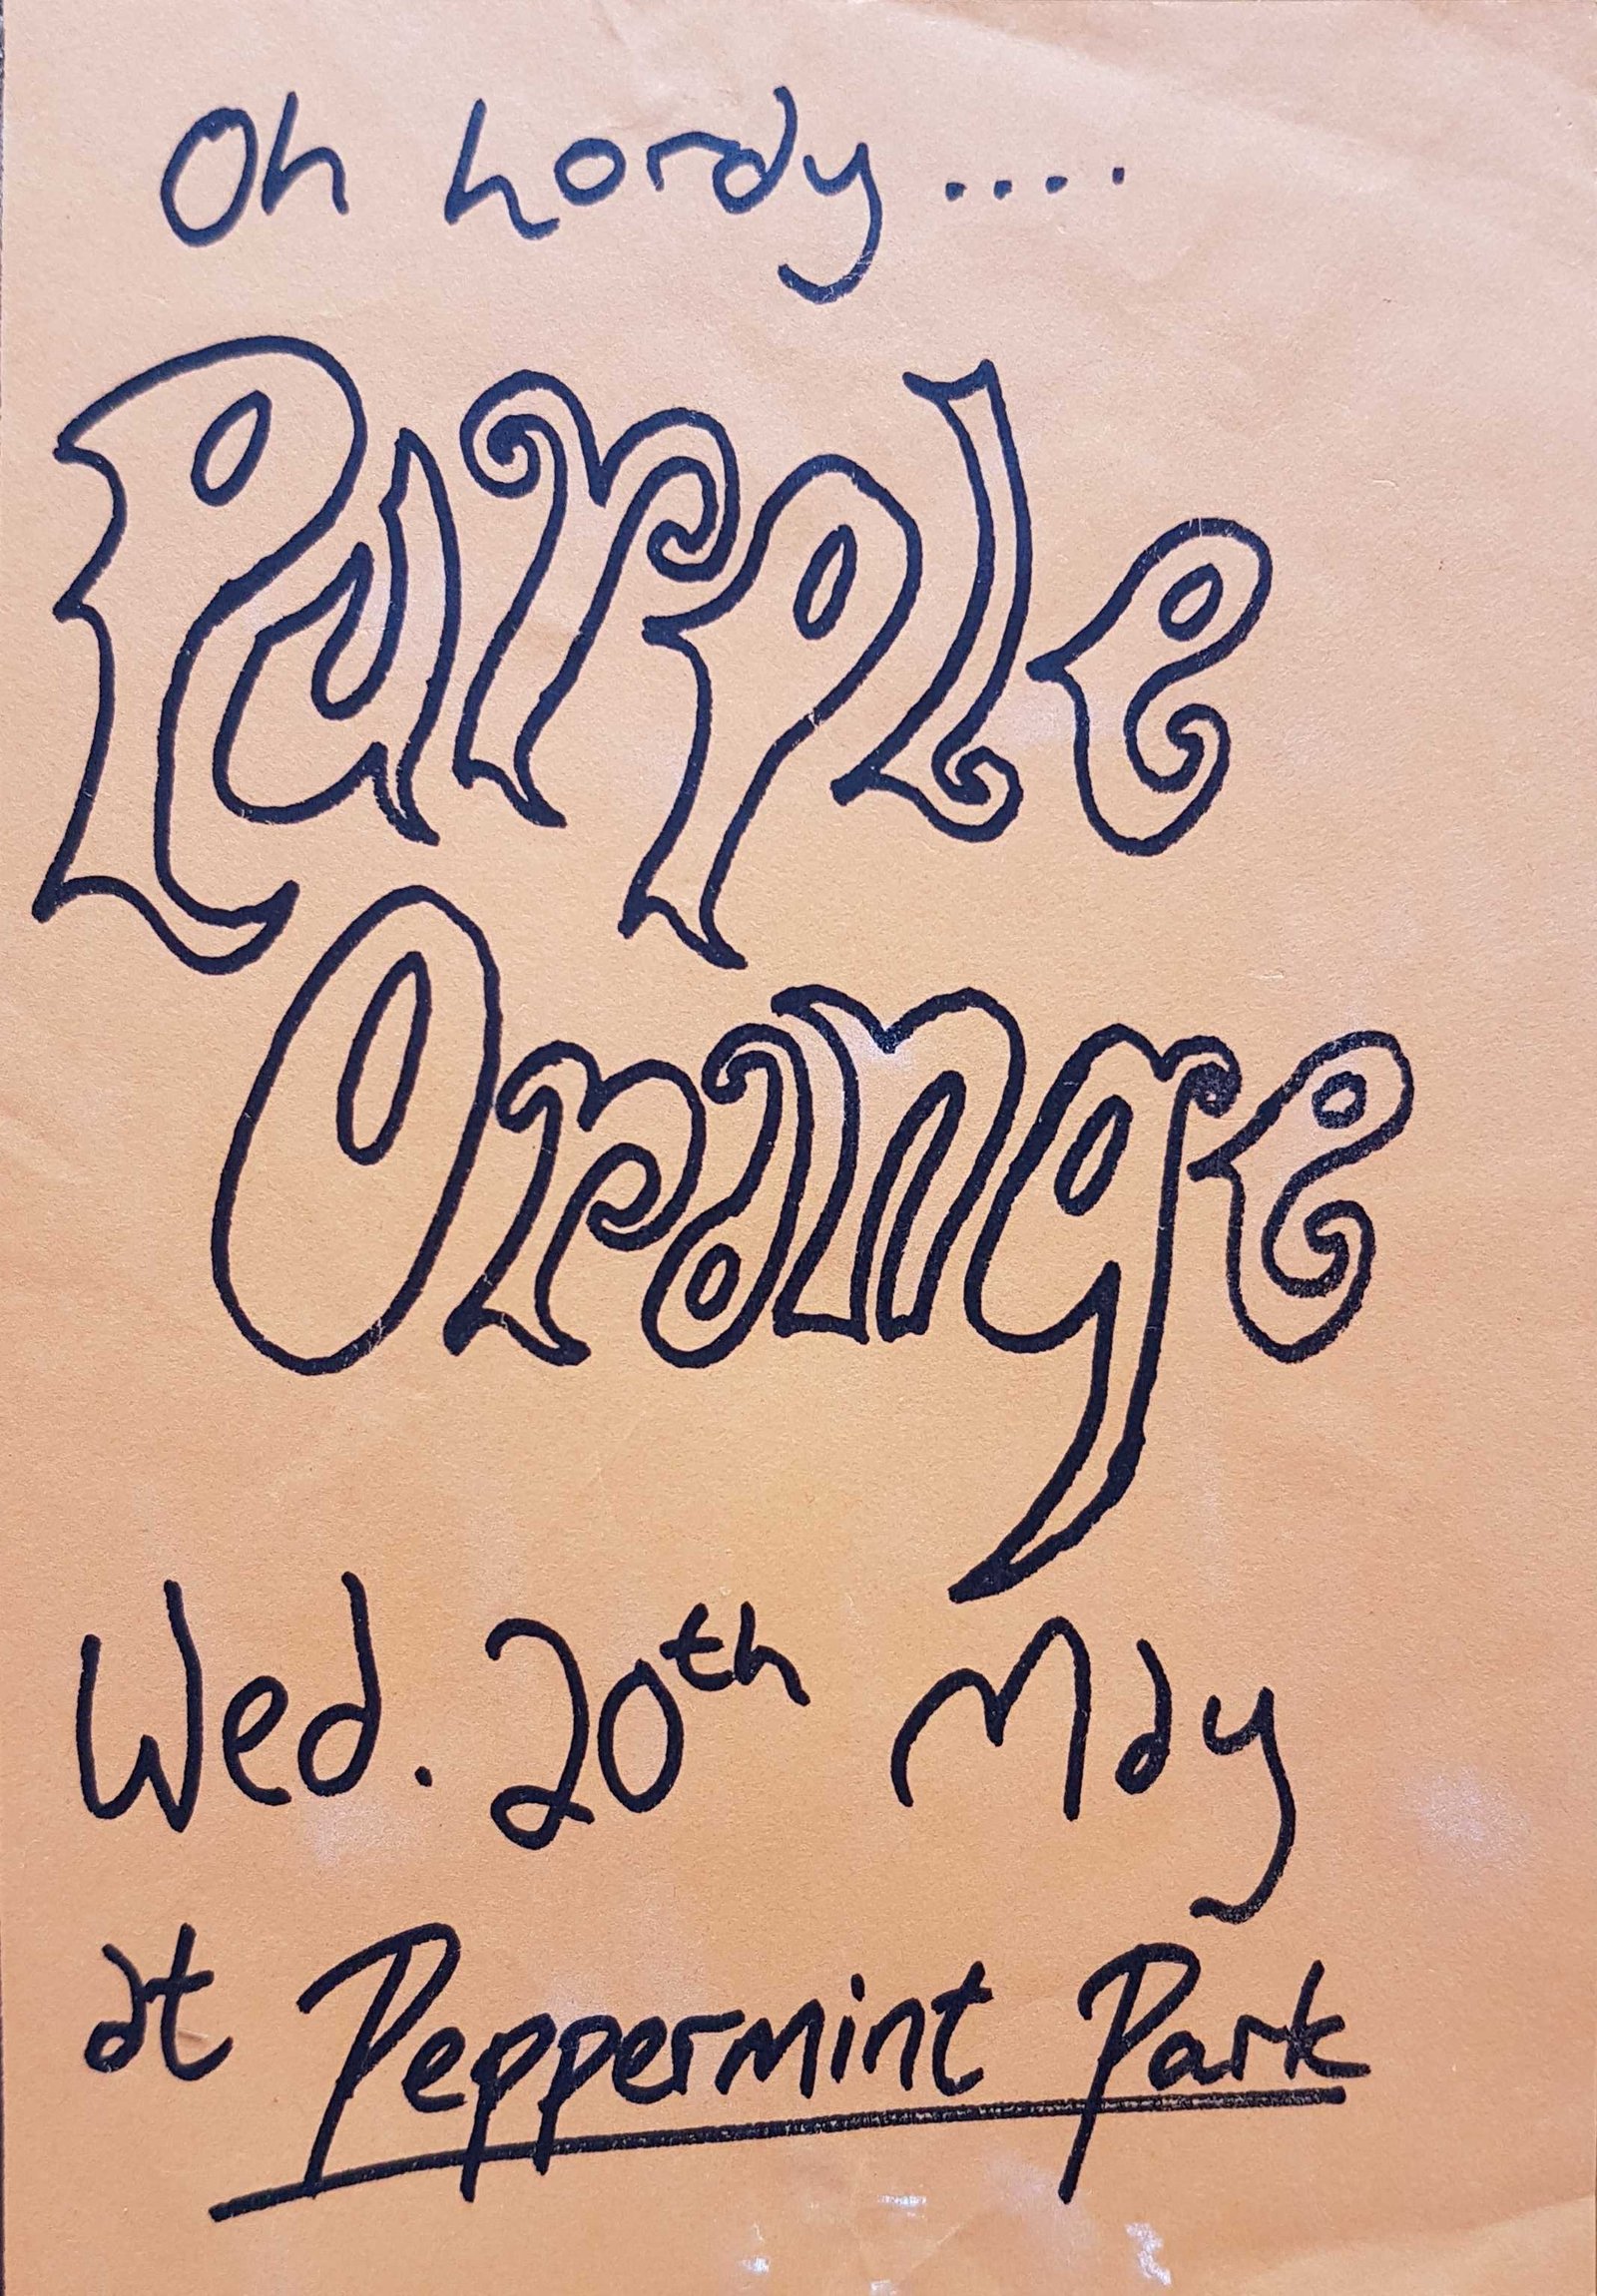 Oh Lordy....
Purple
Orange
Wed. 20th May
at Peppermint Park